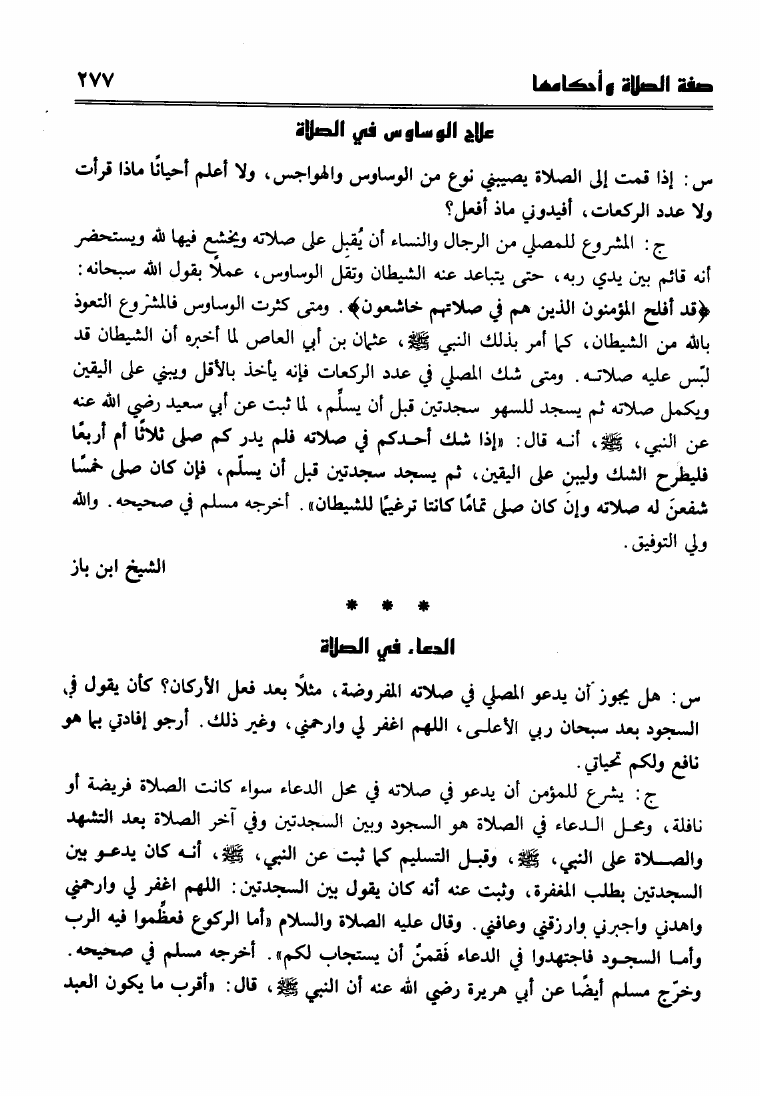 صفة الصلاة وأحكامها ٢٧٧
علاج الوساوس في الصلاة
س: إذا قمت إلى الصلاة يصيبني نوع من الوساوس والهواجس، ولا أعلم أحيانًا ماذا قرأت
ولا عدد الركعات، أفيدوني ماذ أفعل؟
ج: المشروع للمصلي من الرجال والنساء أن يُقبِل على صلاته ويخشع فيها لله ويستحضر
أنه قائم بين يدي ربه، حتى يتباعد عنه الشيطان وتقل الوساوس، عملًا بقول الله سبحانه:
﴿قد أفلح المؤمنون الذين هم في صلاتهم خاشعون﴾. ومتى كثرت الوساوس فالمشروع التعوذ
بالله من الشيطان، كما أمر بذلك النبي ﷺ، عثمان بن أبي العاص لما أخبره أن الشيطان قد
لبّس عليه صلاته. ومتى شك المصلي في عدد الركعات فإنه يأخذ بالأقل ويبني على اليقين
ويكمل صلاته ثم يسجد للسهو سجدتين قبل أن يسلِّم، لما ثبت عن أبي سعيد رضي الله عنه
عن النبي، ﷺ، أنه قال: «إذا شك أحدكم في صلاته فلم يدر كم صلى ثلاثًا أم أربعًا
فليطرح الشك وليبن على اليقين، ثم يسجد سجدتين قبل أن يسلّم، فإن كان صلى خمسًا
شفعنَ له صلاته وإن كان صلى تمامًا كانتا ترغيمًا للشيطان». أخرجه مسلم في صحيحه. والله
ولي التوفيق.
الشيخ ابن باز
* * *
الدعاء في الصلاة
س: هل يجوز أن يدعو المصلي في صلاته المفروضة، مثلًا بعد فعل الأركان؟ كأن يقول في
السجود بعد سبحان ربي الأعلى، اللهم اغفر لي وارحمني، وغير ذلك. أرجو إفادتي بما هو
نافع ولكم تحياتي.
ج: يشرع للمؤمن أن يدعو في صلاته في محل الدعاء سواء كانت الصلاة فريضة أو
نافلة، ومحل الدعاء في الصلاة هو السجود وبين السجدتين وفي آخر الصلاة بعد التشهد
والصلاة على النبي، ﷺ، وقبل التسليم كما ثبت عن النبي، ﷺ، أنه كان يدعو بين
السجدتين بطلب المغفرة، وثبت عنه أنه كان يقول بين السجدتين: اللهم اغفر لي وارحمني
واهدني واجبرني وارزقني وعافني. وقال عليه الصلاة والسلام «أما الركوع فعظّموا فيه الرب
وأما السجود فاجتهدوا في الدعاء فَقمنٌ أن يستجاب لكم». أخرجه مسلم في صحيحه.
وخرّج مسلم أيضًا عن أبي هريرة رضي الله عنه أن النبي ﷺ، قال: «أقرب ما يكون العبد